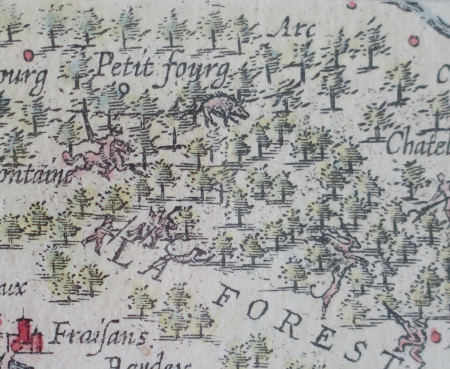 Arc
ourg Petit fourg
Chatel
ontaine
LA FOREST
aux
Fraiſans